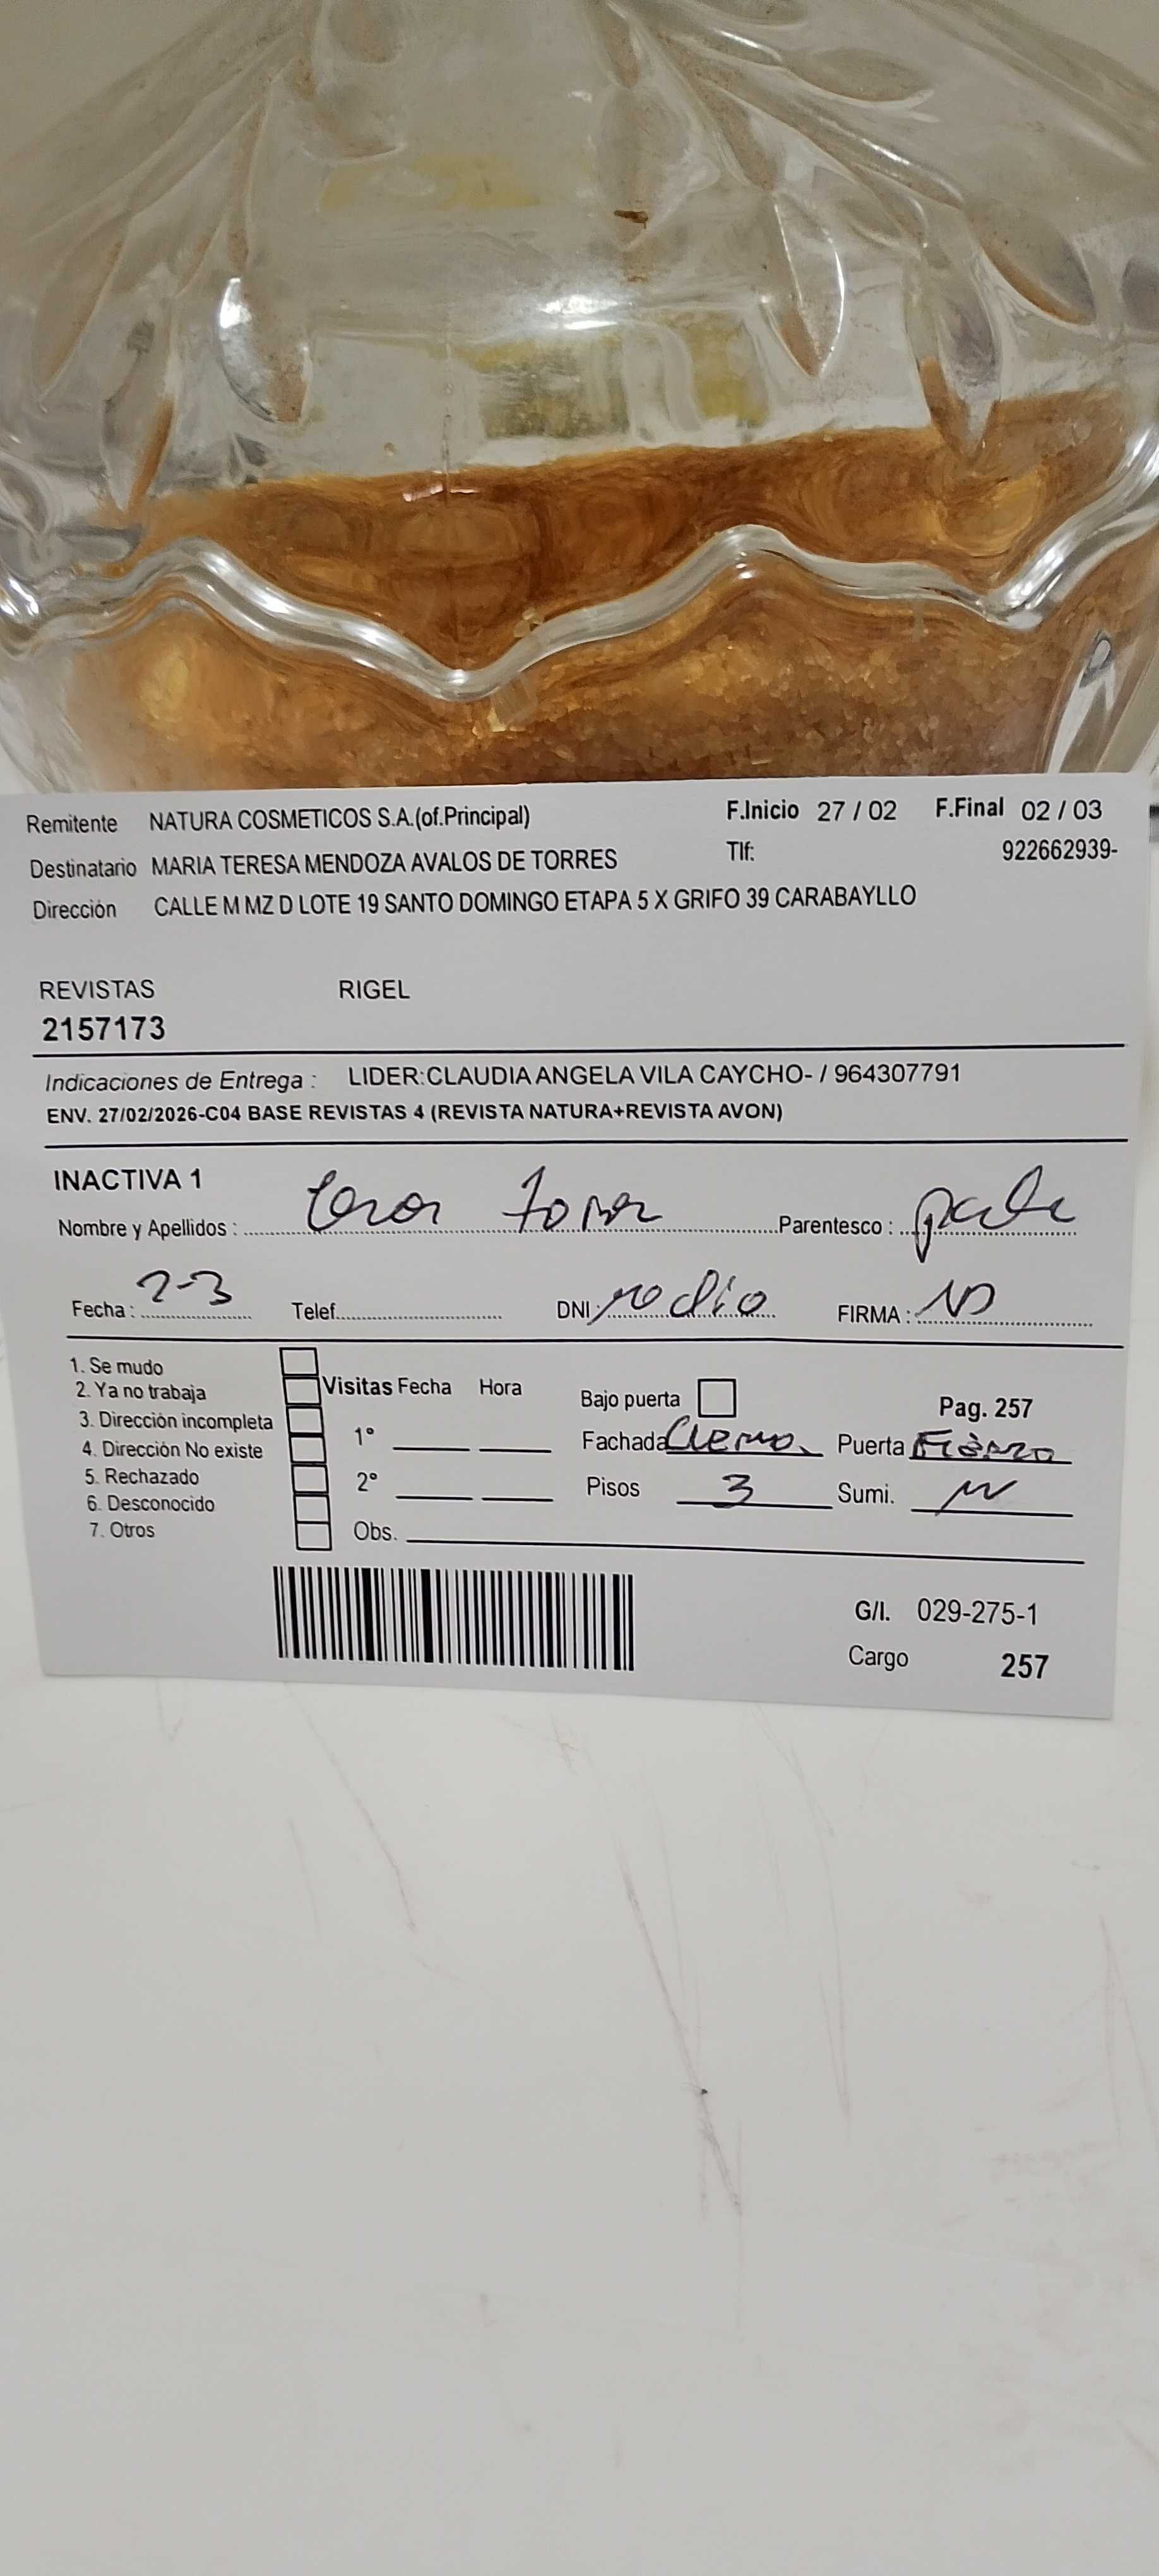 Remitente NATURA COSMETICOS S.A.(of.Principal) F.Inicio 27 / 02 F.Final 02 / 03
Destinatario MARIA TERESA MENDOZA AVALOS DE TORRES Tlf: 922662939-
Dirección CALLE M MZ D LOTE 19 SANTO DOMINGO ETAPA 5 X GRIFO 39 CARABAYLLO
REVISTAS RIGEL
2157173
Indicaciones de Entrega : LIDER:CLAUDIA ANGELA VILA CAYCHO- / 964307791
ENV. 27/02/2026-C04 BASE REVISTAS 4 (REVISTA NATURA+REVISTA AVON)
INACTIVA 1
Nombre y Apellidos : Parentesco :
Fecha : 2-3 Telef. DNI: no dio FIRMA :
1. Se mudo
2. Ya no trabaja
3. Dirección incompleta
4. Dirección No existe
5. Rechazado
6. Desconocido
7. Otros
Visitas Fecha Hora
1°
2°
Obs.
Bajo puerta Pag. 257
Fachada Crema Puerta Fierro
Pisos 3 Sumi.
G/I. 029-275-1
Cargo 257